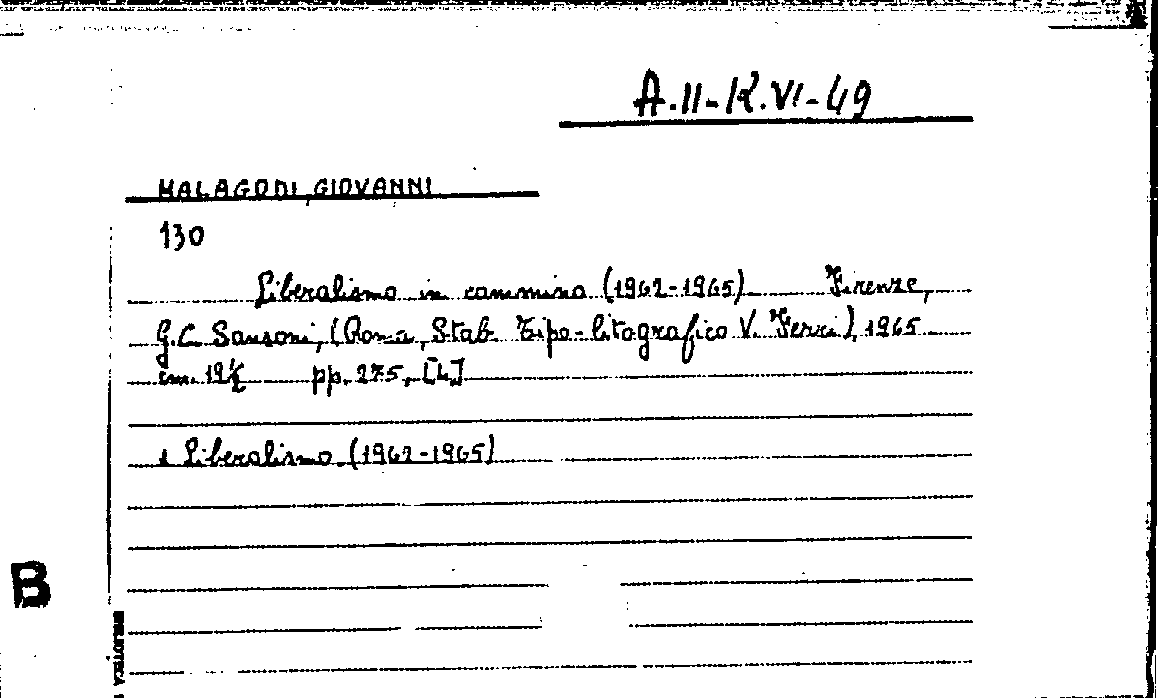 A.II-K.VI-49
MALAGODI, GIOVANNI
130
Liberalismo in cammino (1962-1965) Firenze,
G.C. Sansoni, (Roma, Stab. Tipo-litografico V. Ferri), 1965
cm. 19½ pp. 275, [4]
1 Liberalismo (1962-1965)
B
BIBLIOTECA